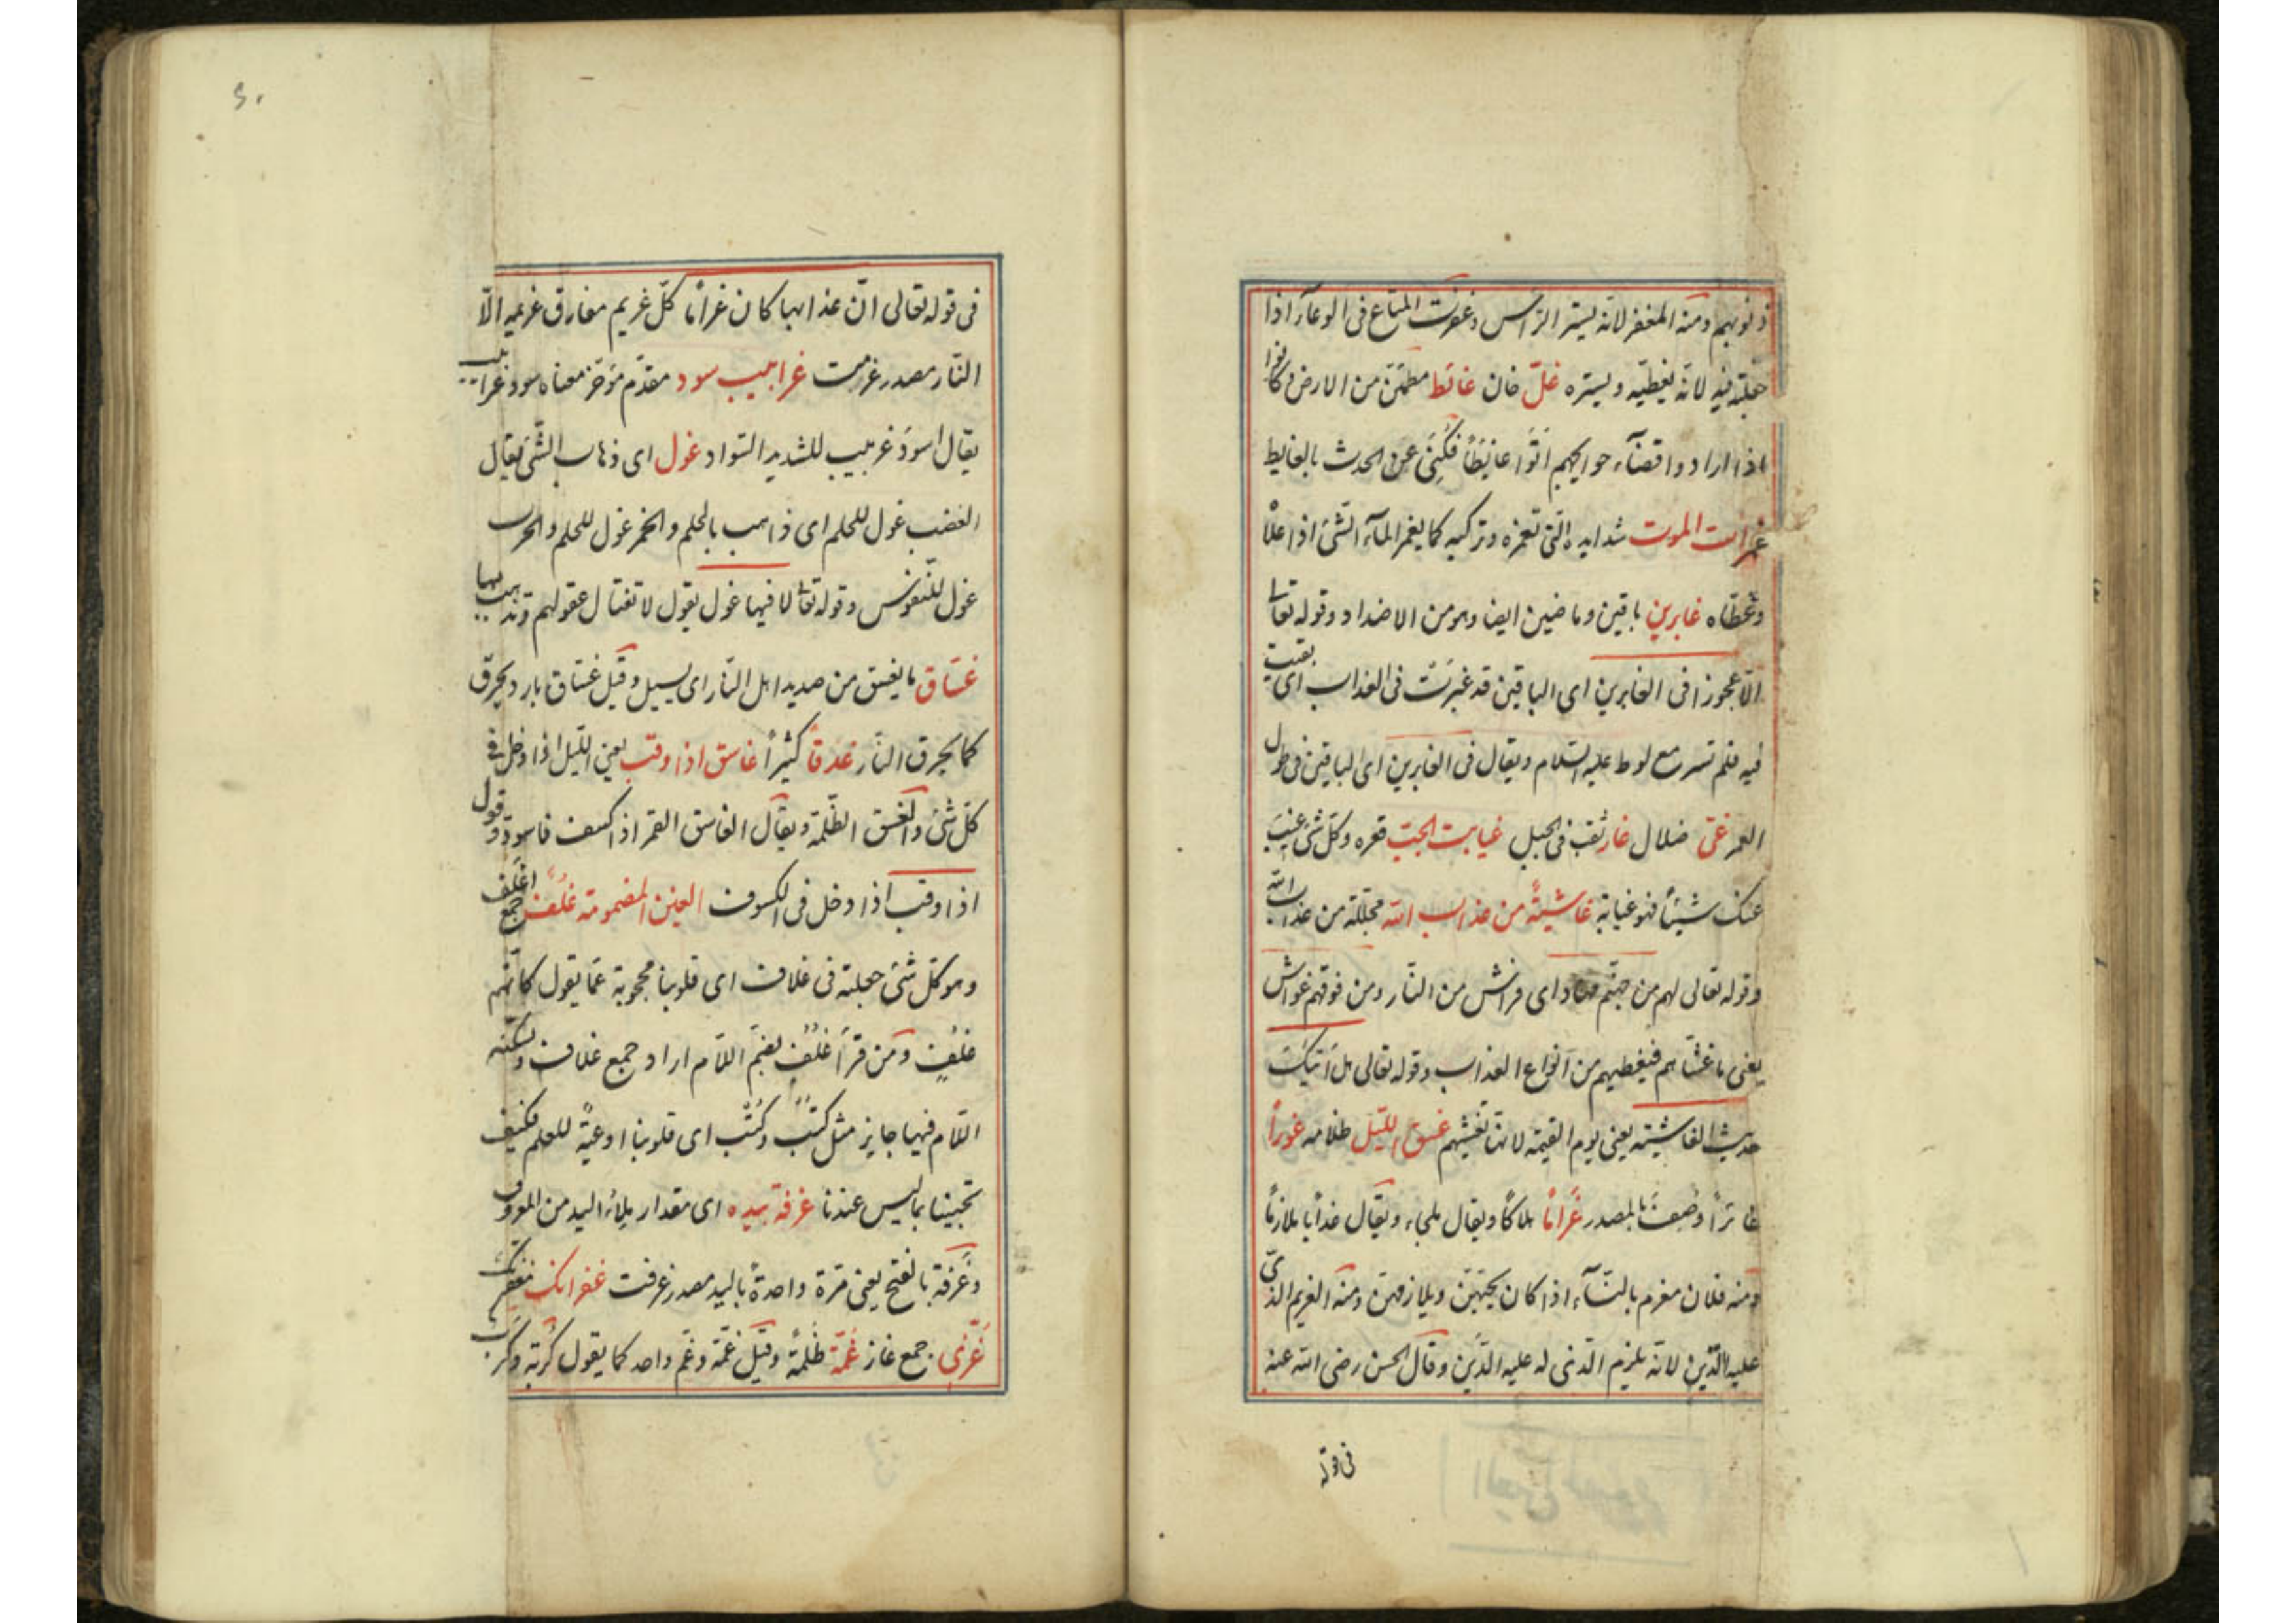 ذنوبهم ومنه المغفر لانه يستر الرّاس وغفرت المتاع فى الوعآء اذا
جعلته فيه لانّه يغطّيه ويستره غلّ خان غائط مطمئن من الارض وكانوا
اذا ارادوا قضآء حوايجهم اتوا غائطا فكنى عن الحدث بالغايط
غمرات الموت شدايده الّتى تغمره وتركبه كما يغمر المآء الشّئ اذا علاه
وغطّاه غابرين باقين وماضين ايضا وهو من الاضداد وقوله تعالى
الّا عجوزا فى الغابرين اى الباقين قد غبرت فى العذاب اى بقيت
فيه فلم تسر مع لوط عليه السّلام ويقال فى الغابرين اى الباقين فى طول
العمر غىّ ضلال غار ثقب فى الجبل غيابت الجبّ قعره وكلّ شئ غيّب
عنك شيئا فهو غيابة غاشية من عذاب الله مجلّلة من عذاب الله
وقوله تعالى لهم من جهنّم مهاد اى فراش من النّار ومن فوقهم غواش
يعنى ما غشّاهم فيغطيهم من انواع العذاب وقوله تعالى هل اتيك
حديث الغاشية يعنى يوم القيمة لانها تغشيهم غسق اللّيل ظلامه غورا
غائرا وصف بالمصدر غراما هلاكا ويقال ملحاء ويقال عذابا ملازما
ومنه فلان مغرم بالنّسآء اذا كان يحبّهنّ ويلازمهنّ ومنه الغريم الذى
عليه الدّين لانّه يلزم الّذى له عليه الدّين وقال الحسن رضى الله عنه
فى قوله
فى قوله تعالى انّ عذابها كان غراما كلّ غريم مفارق غريمه الّا
النّار مصدر غرمت غرابيب سود مقدّم مؤخر معناه سود غرابيب
يقال اسود غربيب للشديد السّواد غول اى ذهاب الشّئ يقال
الغضب غول للحلم اى ذاهب بالحلم والخمر غول للحلم والحرب
غول للنّفوس وقوله تعالى لا فيها غول يقول لا تغتال عقولهم وتذهب بها
غسّاق ما يغسق من صديد اهل النّار اى يسيل وقيل غسّاق بارد يحرق
كما يحرق النّار غدقا كثيرا غاسق اذا وقب يعنى اللّيل اذا دخل فى
كلّ شئ والغسق الظّلمة ويقال الغاسق القمر اذا كسف فاسودّ وقول
اذا وقب اذا دخل فى الكسوف الغين المضمومة غلف جمع اغلف
وهو كلّ شئ جعلته فى غلاف اى قلوبنا محجوبة عمّا يقول كانّهم
غلف ومن قرأ غلف بضمّ اللّام اراد جمع غلاف وتسكينه
اللّام فيها جايز مثل كتب وكتب اى قلوبنا اوعية للعلم فكيف
تجيبنا بما ليس عندنا غرفة بيده اى مقدار ملء اليد من المغروف
وغرفة بالفتح يعنى مرّة واحدة باليد مصدر غرفت غفرانك مغفرتك
غزّى جمع غاز غمّة ظلمة وقيل غمّة وغمّ واحد كما يقول كربة وكرب